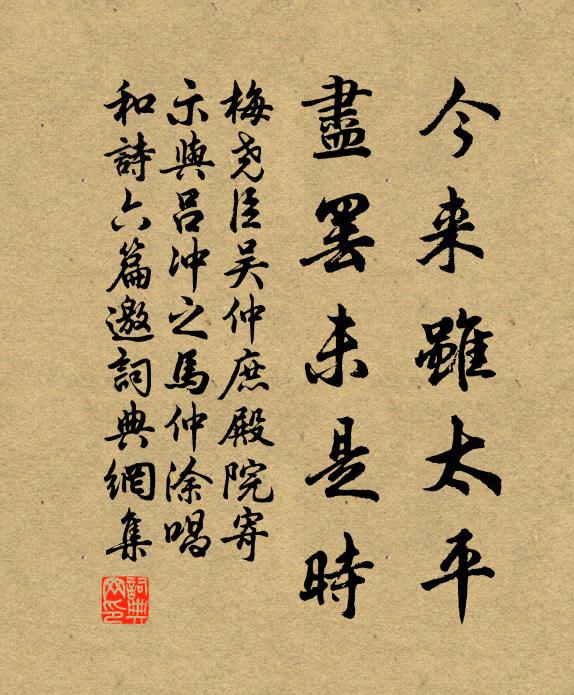 今来雖太平
盡罷未是時
梅尧臣吴仲庶殿院寄
示與吕冲之馬仲涂唱
和詩六篇邀詞典網集
詞典网印